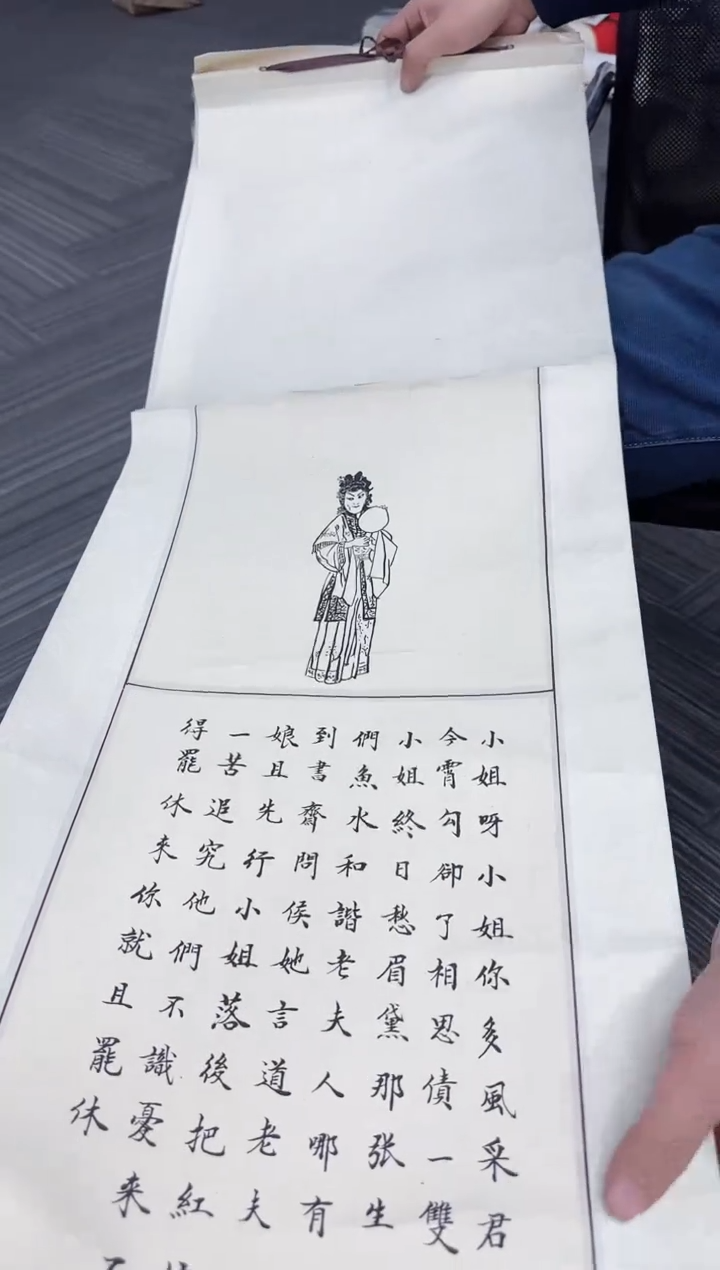 小姐呀小姐你多風采君
今霄勾卻了相思債一雙
小姐終日愁眉黛那张生
們魚水和諧老夫人哪有
到書齋問侯她言道老夫
娘且先行小姐落後把紅
一苦追究他們不識憂來
得罷休來你就且罷休